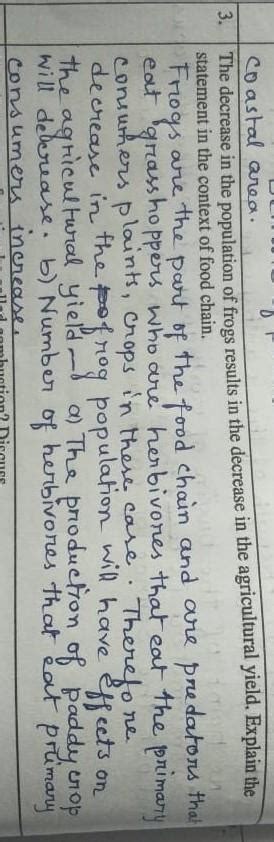 coastal area.
3. The decrease in the population of frogs results in the decrease in the agricultural yield. Explain the
statement in the context of food chain.
Frogs are the part of the food chain and are predators that
eat grasshoppers who are herbivores that eat the primary
consumers plaints, crops in these case. Therefore
decrease in the frog population will have effects on
the agricultural yield— a) The production of paddy crop
will debrease. b) Number of herbivores that eat primary
consumers increase.
called combustion? Discuss